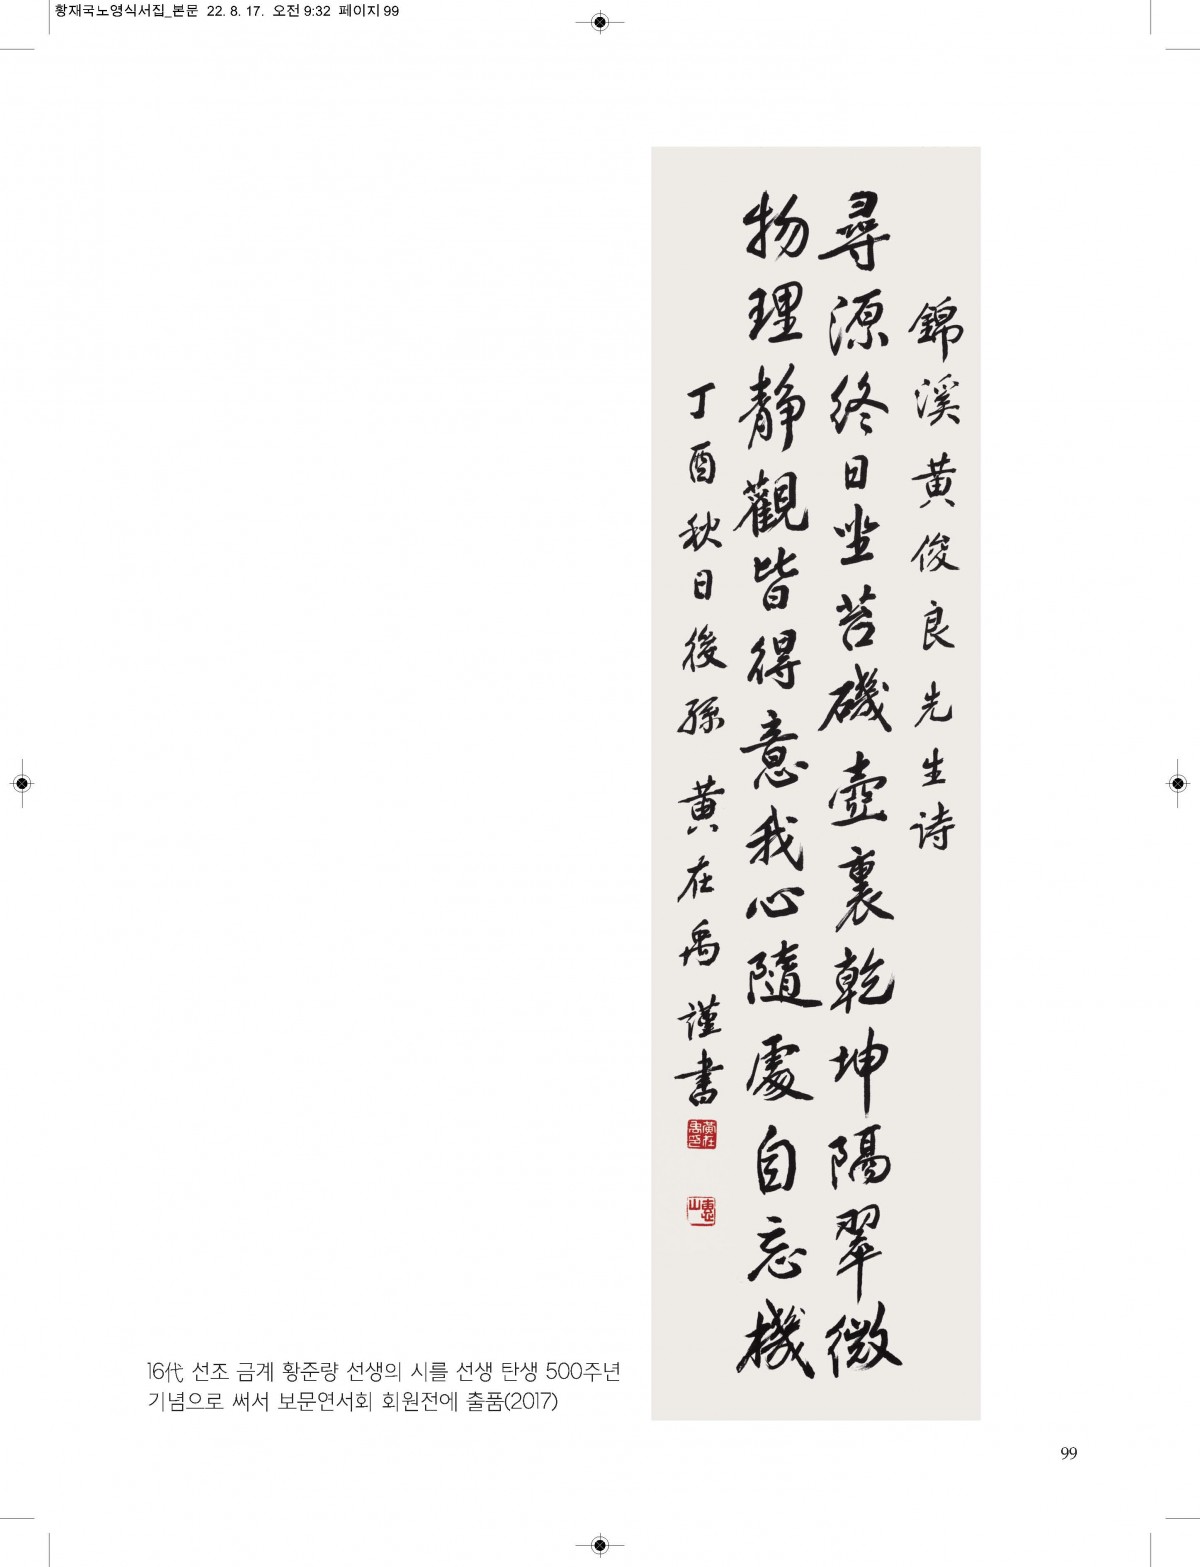 황재국노영식서집_본문 22. 8. 17. 오전 9:32 페이지 99
錦溪黄俊良先生詩
尋源終日坐苔磯壺裏乾坤隔翠微
物理靜觀皆得意我心隨處自忘機
丁酉秋日後孫 黄在禹 謹書
16代 선조 금계 황준량 선생의 시를 선생 탄생 500주년
기념으로 써서 보문연서회 회원전에 출품(2017)
99